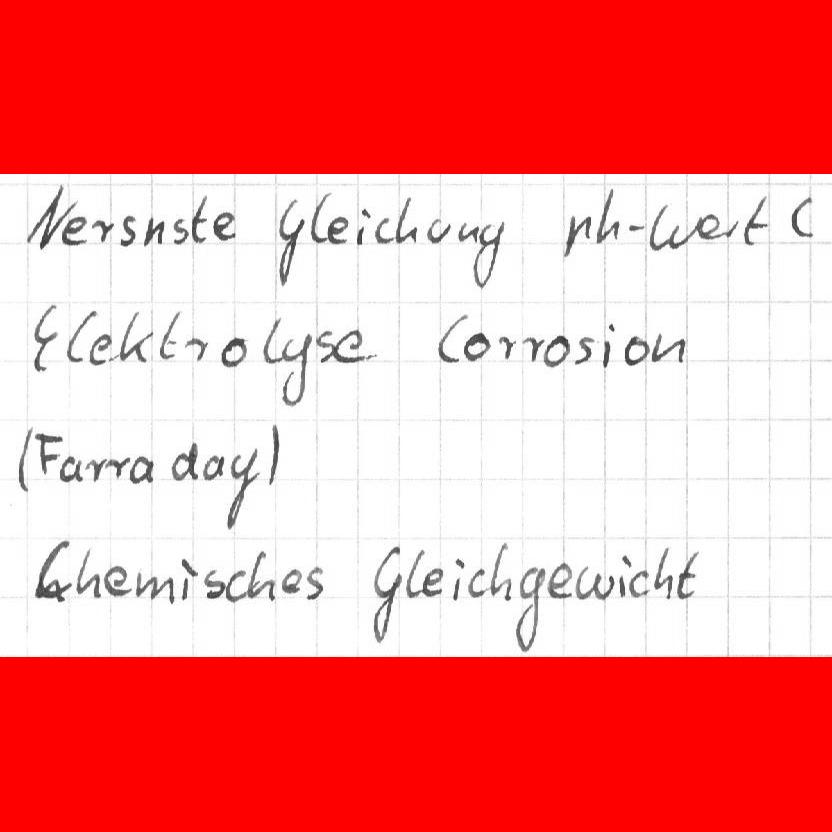 Nersnste Gleichung ph-Wert (
Elektrolyse Corrosion
(Farraday)
Chemisches Gleichgewicht